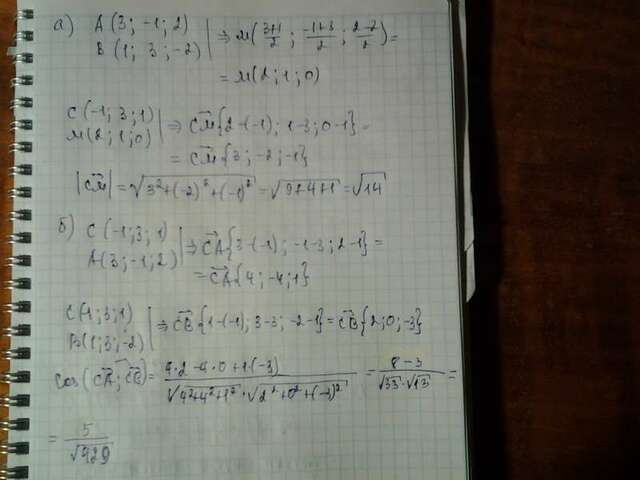 а) A(3; -1; 2)
B(1; 3; -2) | ⇒ M(3+1/2; -1+3/2; 2-2/2) =
= M(2; 1; 0)
C(-1; 3; 1)
M(2; 1; 0) | ⇒ CM{2-(-1); 1-3; 0-1} =
= CM{3; -2; -1}
|CM| = √3²+(-2)²+(-1)² = √9+4+1 = √14
б) C(-1; 3; 1)
A(3; -1; 2) | ⇒ CA{3-(-1); -1-3; 2-1} =
= CA{4; -4; 1}
C(-1; 3; 1)
B(1; 3; -2) | ⇒ CB{1-(-1); 3-3; -2-1} = CB{2; 0; -3}
cos(CA; CB) = 4·2-4·0+1·(-3)/√4²+4²+1²·√2²+0²+(-3)² = 8-3/√33·√13 =
= 5/√429